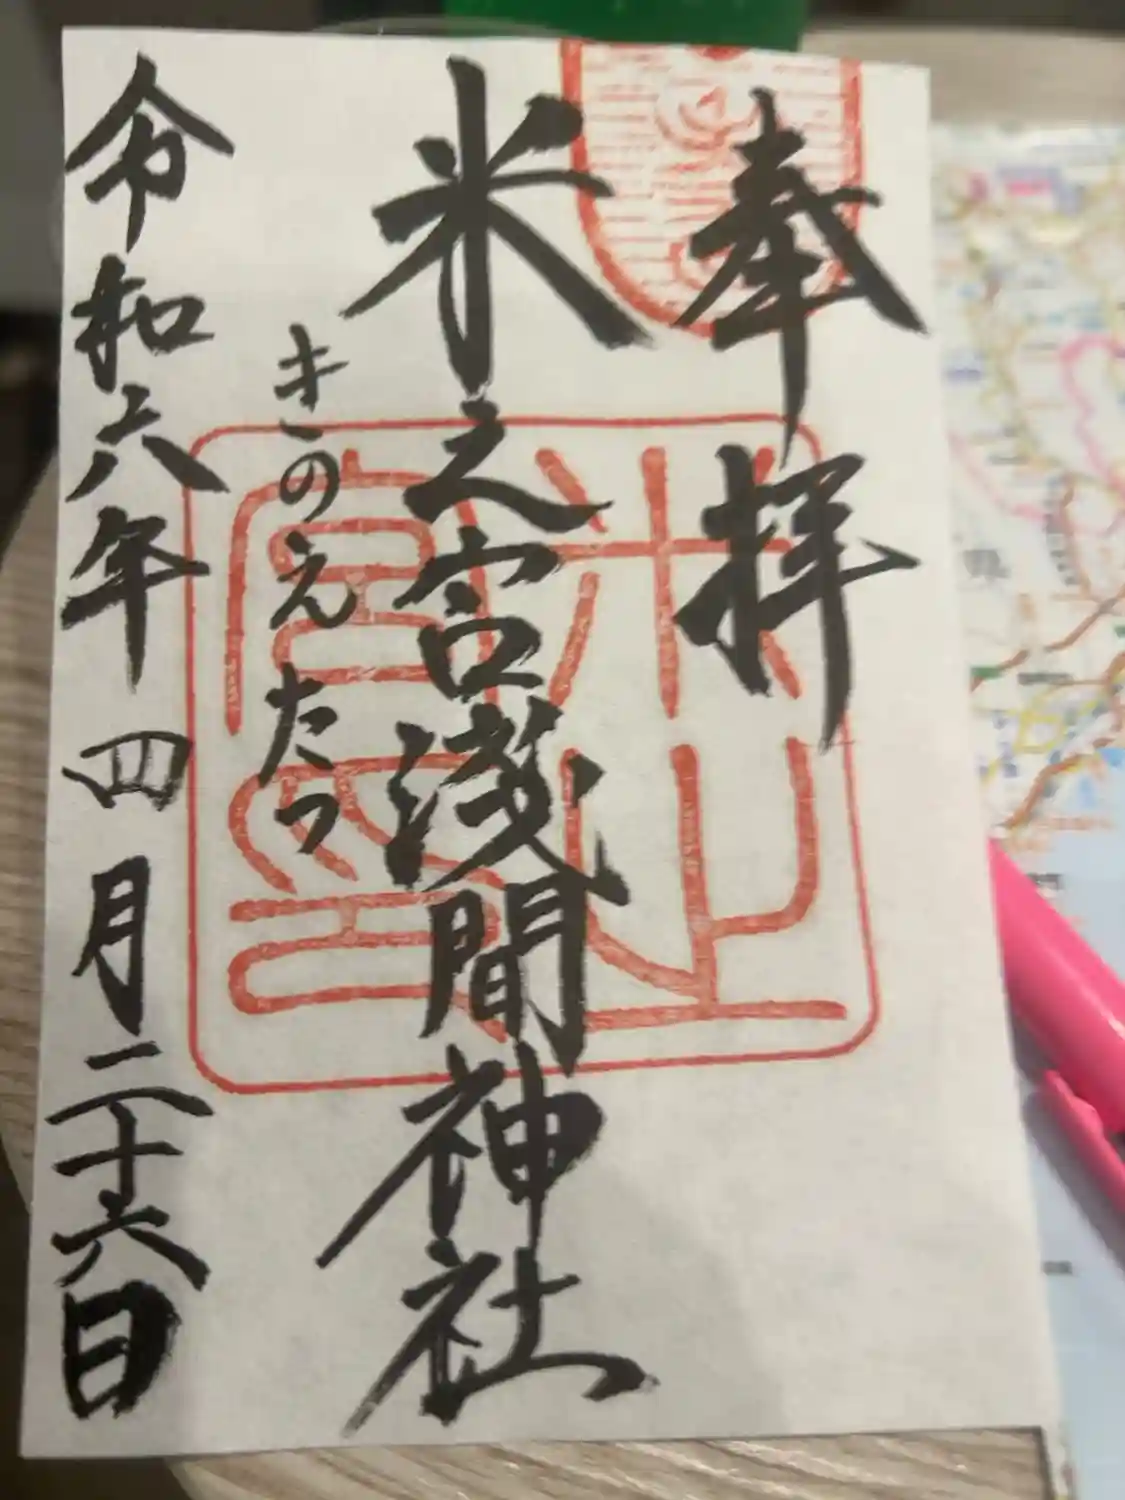 奉拝
米之宮浅間神社
きのえたつ
令和六年四月二十六日
米之宮印